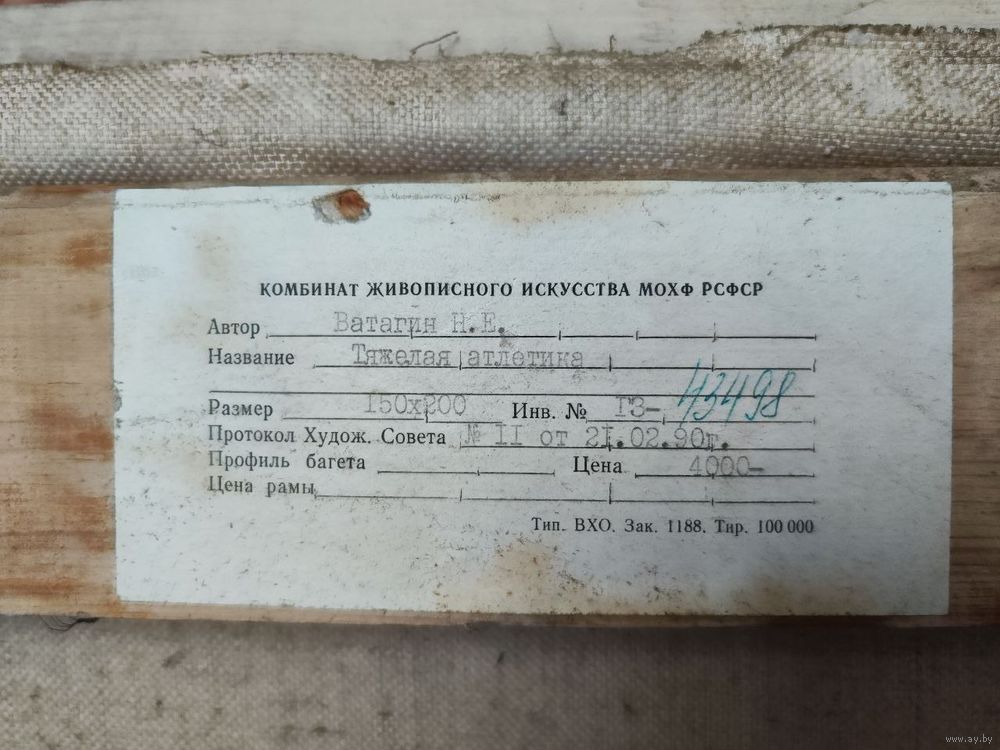 КОМБИНАТ ЖИВОПИСНОГО ИСКУССТВА МОХФ РСФСР
Автор Ватагин Н.Е.
Название Тяжелая атлетика
Размер 150х200 Инв. № ГЗ- 43498
Протокол Худож. Совета № II от 2I.02.90г.
Профиль багета Цена 4000-
Цена рамы
Тип. ВХО. Зак. 1188. Тир. 100 000
www.ay.by